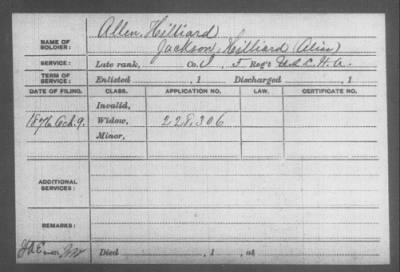 NAME OF SOLDIER: Allen, Hilliard
Jackson, Hilliard (Alias)
SERVICE: Late rank, Co. 5 Reg't U.S.C.H.A.
TERM OF SERVICE: Enlisted , 1 Discharged , 1
DATE OF FILING. CLASS. APPLICATION NO. LAW. CERTIFICATE NO.
Invalid,
1876 Oct. 9. Widow, 228,306
Minor,
ADDITIONAL SERVICES:
REMARKS:
Died , 1 , at